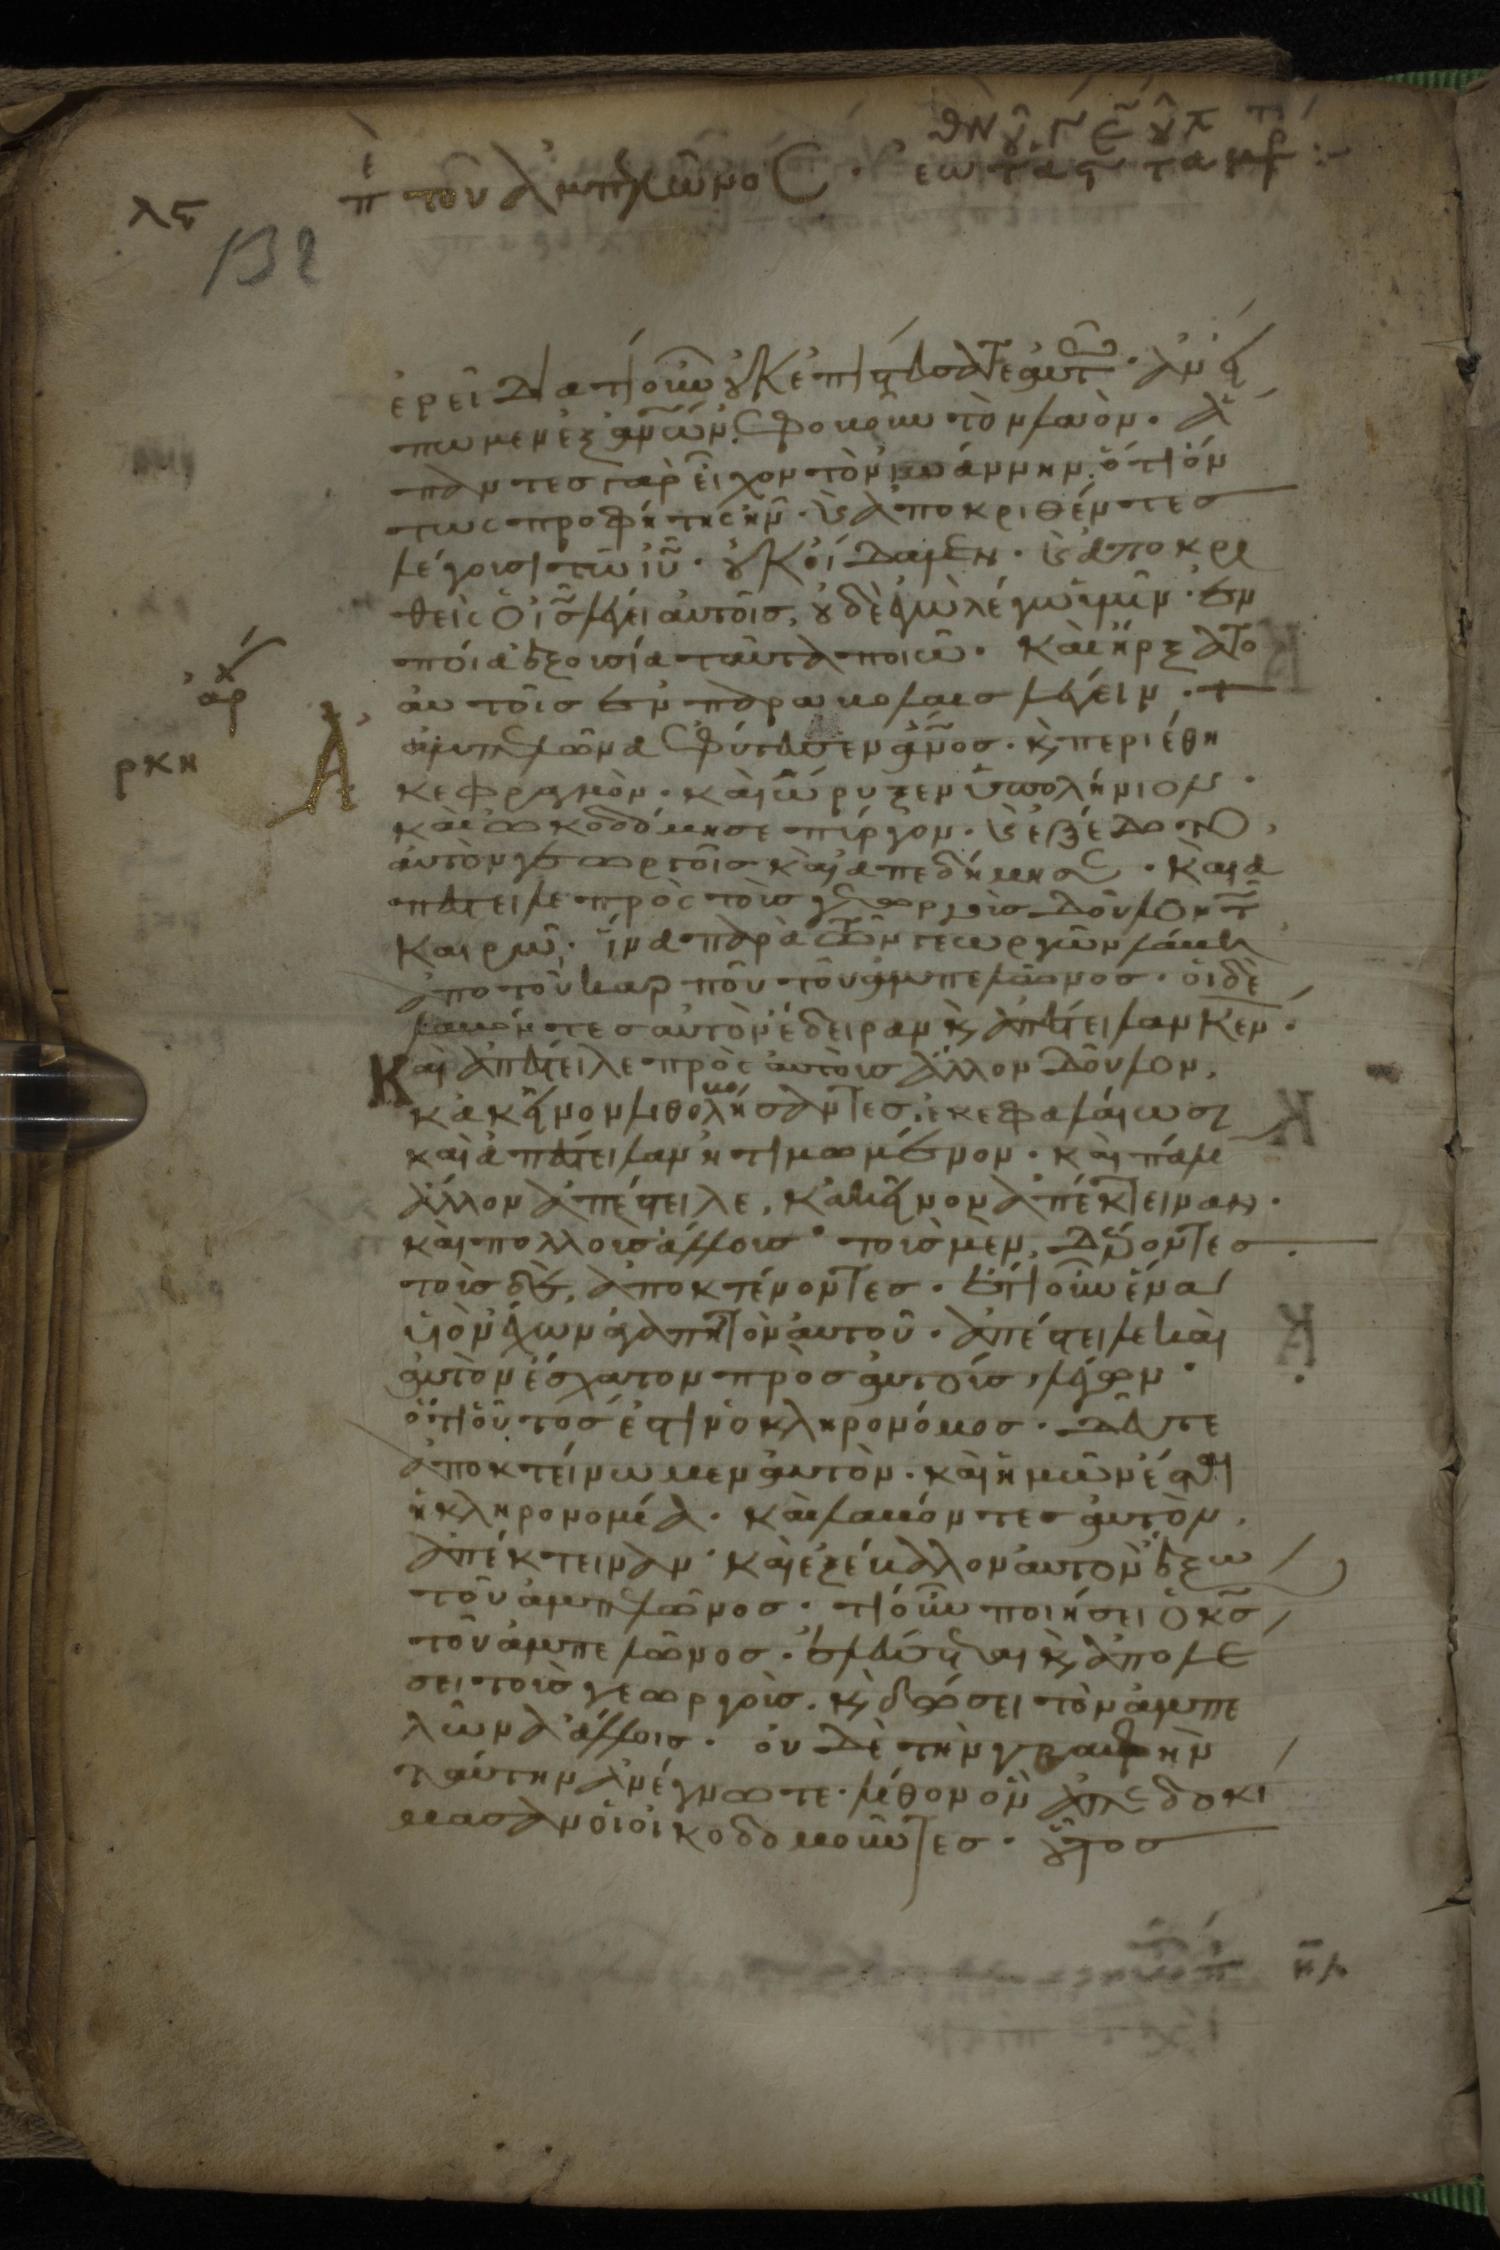 λϛ
π̀ε τοῦ ἀμπελῶνος
132
ἐρεῖ Διατί οὖν οὐκ ἐπιστεύσατε αὐτῶ· ἀλλ' εἴ
πωμεν ἐξ ἀνων, ἐφοβοῦντο τὸν λαὸν· ἅ
παντες γὰρ εἶχον τὸν ἰωάννην, ὅτι ὄν
τως προφήτης ἦν· καὶ ἀποκριθέντες
λέγουσι τῶ ιυ· οὐκ οἴδαμεν· καὶ ἀποκρι
θεὶς ὁ ις λέγει αὐτοῖς, οὐδὲ ἐγὼ λέγω ὑμῖν ἐν
ποία ἐξουσία ταῦτα ποιῶ· Καὶ ἤρξατο
αὐτοῖς ἐν παραβολαῖς λέγειν·
αρχ
ρκη
Ἀμπελῶνα ἐφύτευσεν ἄνος· καὶ περιέθη
κε φραγμὸν· καὶ ὤρυξεν ὑπολήνιον·
καὶ ὠκοδόμησε πύργον· καὶ ἐξέδοτο
αὐτὸν γεωργοῖς καὶ ἀπεδήμησε· Καὶ ἀ
πέστειλε πρὸς τοὺς γεωργοὺς δοῦλον τῶ
καιρῶ, ἵνα παρὰ τῶν γεωργῶν λάβη
ἀπὸ τοῦ καρποῦ τοῦ ἀμπελῶνος· οἱ δὲ
λαβόντες αὐτὸν ἔδειραν καὶ ἀπέστειλαν κενόν·
Καὶ ἀπέστειλε πρὸς αὐτοὺς ἄλλον δοῦλον,
κἀκεῖνον λιθοβολήσαντες, ἐκεφαλαίωσαν
καὶ ἀπέστειλαν ἠτιμωμένον· καὶ πάλιν
ἄλλον ἀπέστειλε, κἀκεῖνον ἀπέκτειναν·
καὶ πολλοὺς ἄλλους· τοὺς μὲν, δέροντες
τοὺς δὲ, ἀποκτένοντες· ἔτι οὖν ἕνα
υἱὸν ἔχων ἀγαπητὸν αὐτοῦ· ἀπέστειλε καὶ
αὐτὸν ἔσχατον πρὸς αὐτοὺς, λέγων·
ὅτι οὗτός ἐστιν ὁ κληρονόμος· δεῦτε
ἀποκτείνωμεν αὐτὸν· καὶ ἡμῶν ἔσται
ἡ κληρονομία· καὶ λαβόντες αὐτὸν,
ἀπέκτειναν· καὶ ἐξέβαλον αὐτὸν ἔξω
τοῦ ἀμπελῶνος· τί οὖν ποιήσει ὁ κς
τοῦ ἀμπελῶνος· ἐλεύσεται καὶ ἀπολέ
σει τοὺς γεωργοὺς· καὶ δώσει τὸν ἀμπε
λῶνα ἄλλοις· οὐδὲ τὴν γραφὴν
ταύτην ἀνέγνωτε· λίθον ὃν ἀπεδοκί
μασαν οἱ οἰκοδομοῦντες· οὗτος